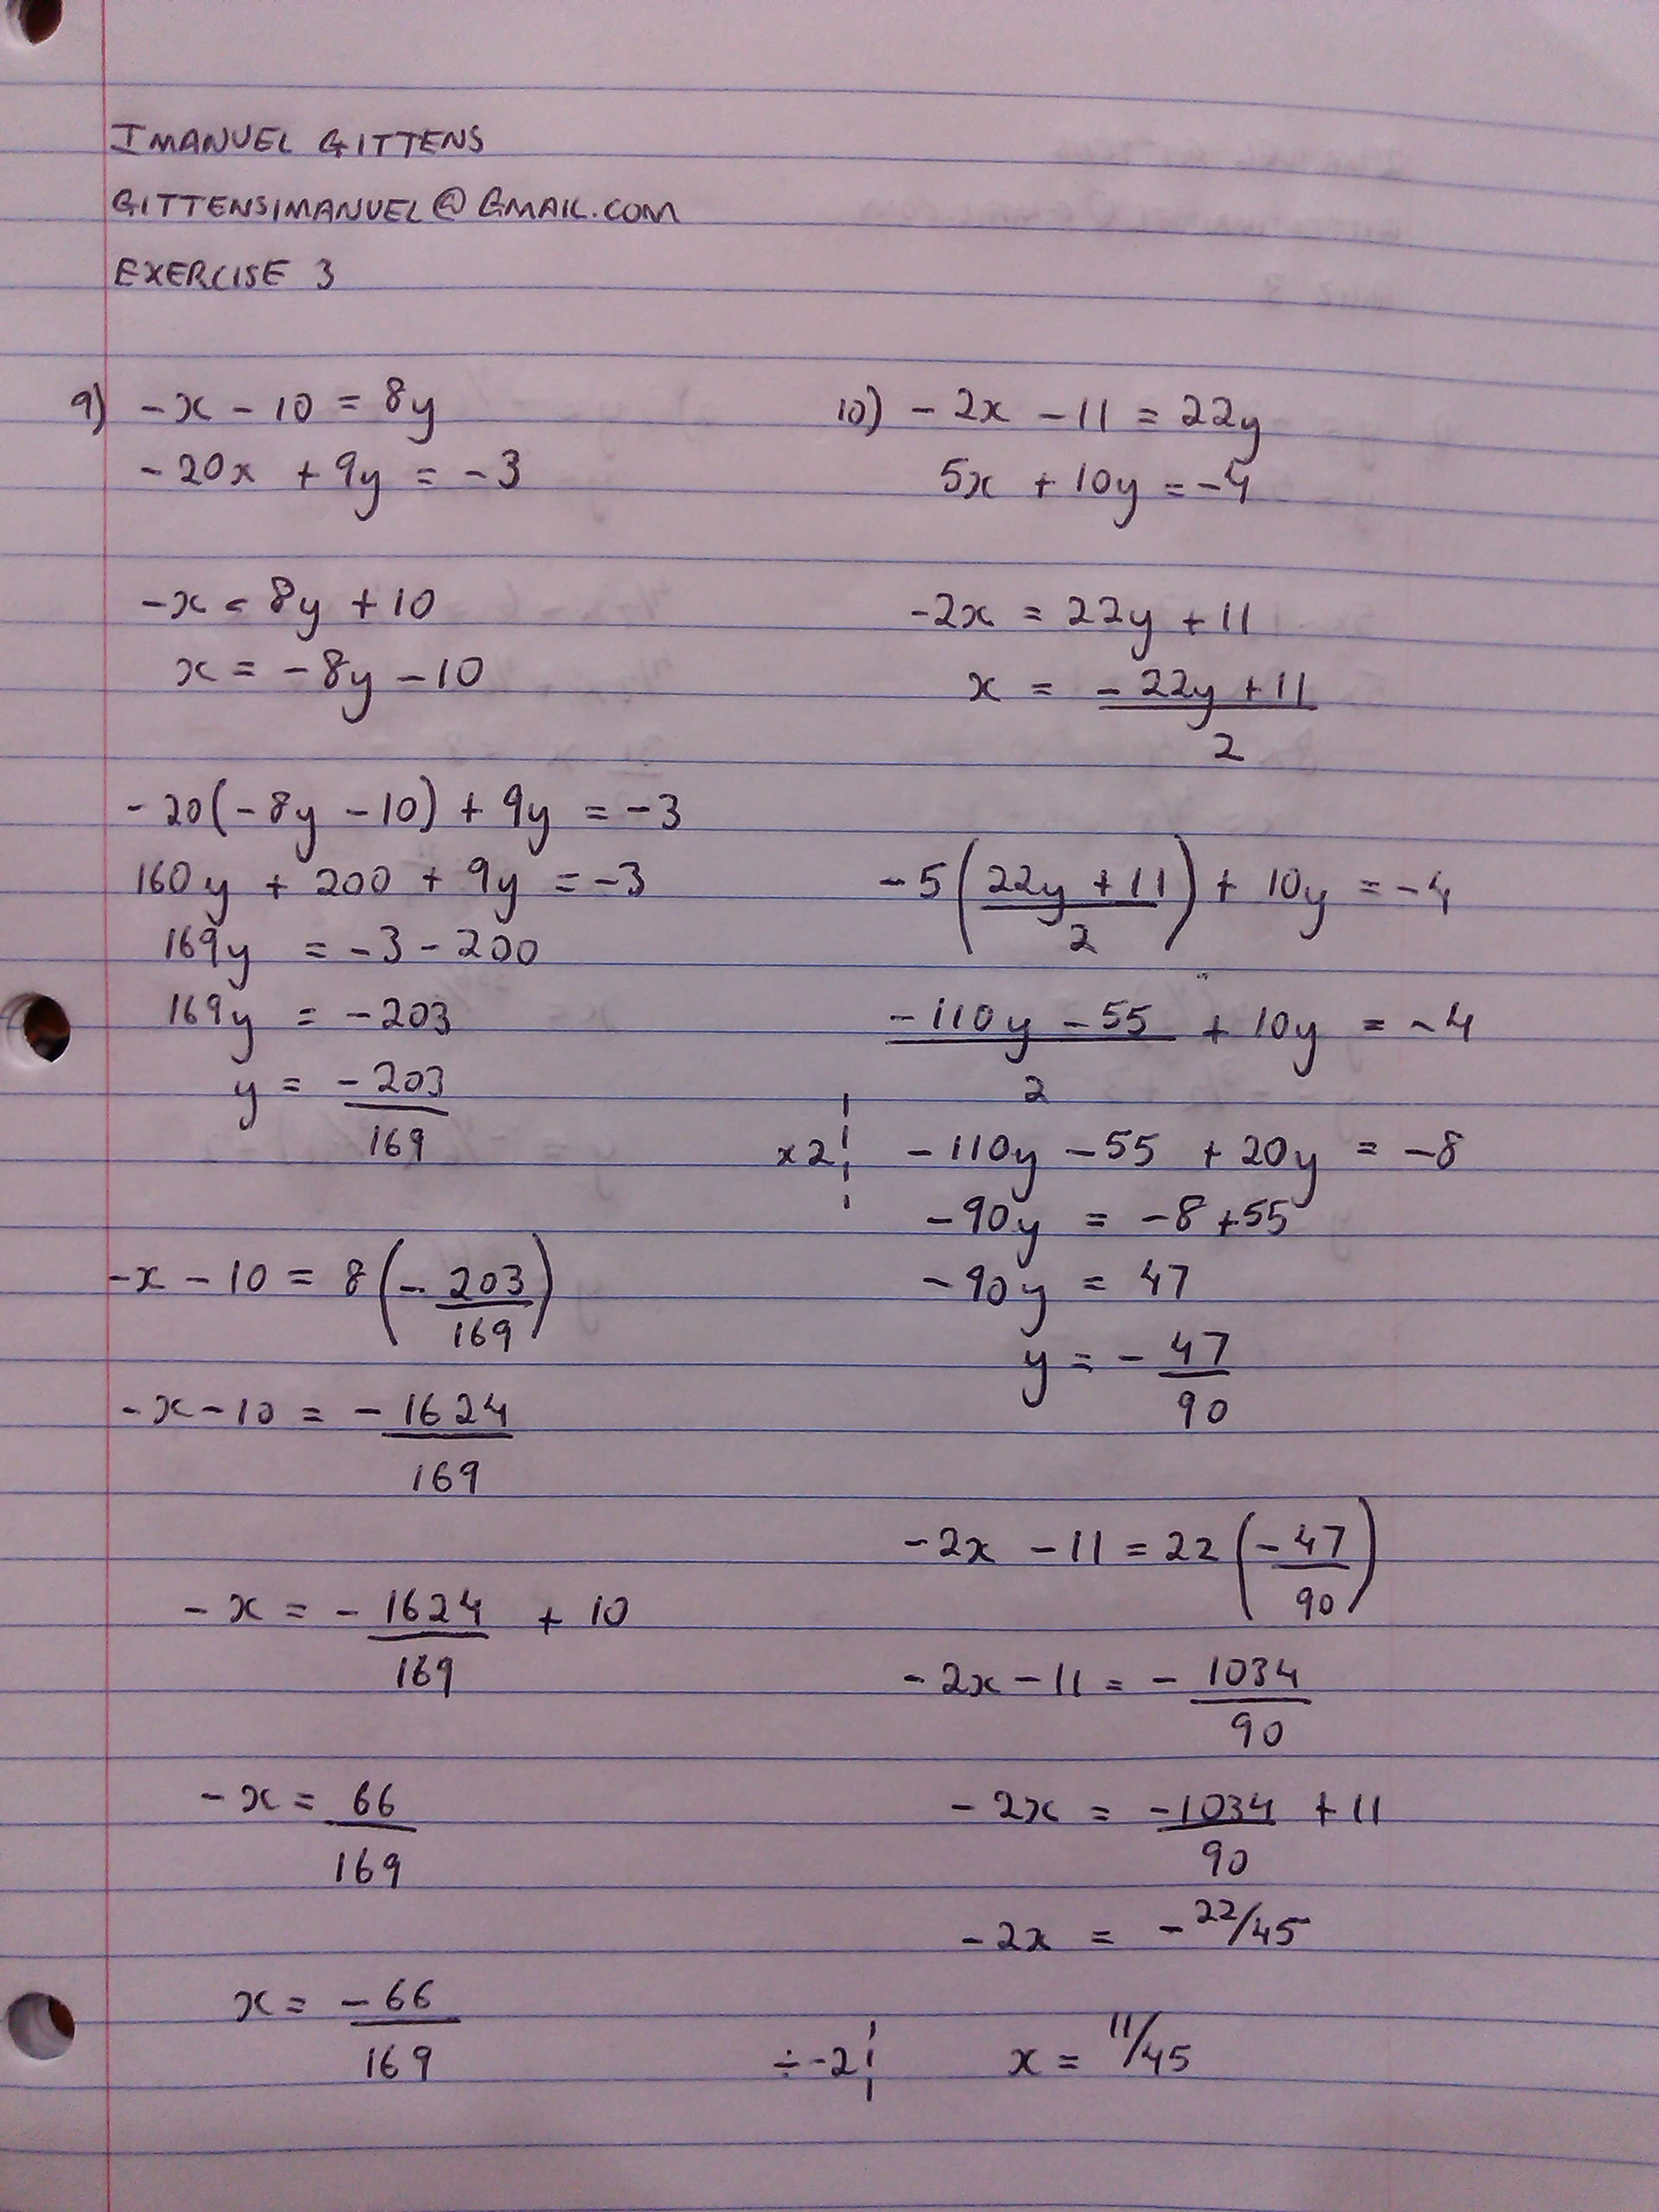 IMANUEL GITTENS
GITTENSIMANUEL@GMAIL.COM
EXERCISE 3
9) -x - 10 = 8y
-20x + 9y = -3
-x = 8y + 10
x = -8y - 10
-20(-8y - 10) + 9y = -3
160y + 200 + 9y = -3
169y = -3 - 200
169y = -203
y = -203
169
-x - 10 = 8(-203
169)
-x - 10 = -1624
169
-x = -1624 + 10
169
-x = 66
169
x = -66
169
10) -2x - 11 = 22y
5x + 10y = -4
-2x = 22y + 11
x = -22y + 11
2
-5(22y + 11) + 10y = -4
2
-110y - 55 + 10y = -4
2
x2 -110y - 55 + 20y = -8
-90y = -8 + 55
-90y = 47
y = -47
90
-2x - 11 = 22(-47
90)
-2x - 11 = -1034
90
-2x = -1034 + 11
90
-2x = -22/45
÷-2 x = 11/45